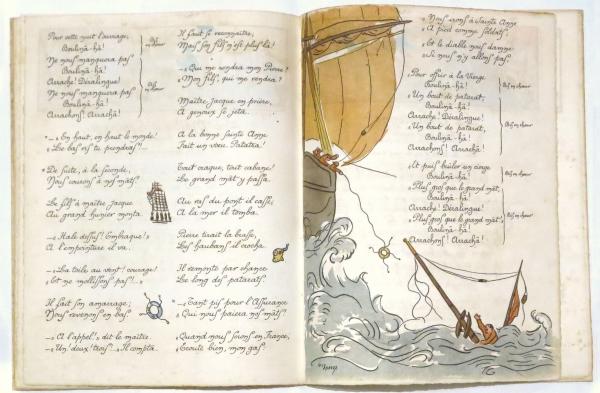 Pour cette nuit l'ouvrage,
Boulinà-hà!
Ne nous manquera pas
Boulinà-hà!
Arrache! Déralingue!
Ne nous manquera pas
Boulinà-hà!
Arrachons! Arrachà!
Bis en chœur
Bis en chœur
— « En haut, en haut le monde!
« Le bas n'y tu prendras! —
De suite, à la seconde,
Nous courons à nos mâts.
Le fils à maître Jacque
Au grand hunier monta
— « Hale dessus! Embraque! »
A l'empointure il va.
— « La toile au vent! courage!
« Et ne mollissons pas!.. »
Il fait son amarrage;
Nous revenons en bas
— « A l'appel! » dit le maître.
— « Un! deux! trois!.. » Il compta.
Il faut se reconnaître,
Mais son fils n'est plus là!
— « Qui me rendra mon Pierre?
« Mon fils, qui me rendra?
Maître Jacque en prière,
A genoux se jeta.
A la bonne Sainte Anne
Fait un vœu. Patatra!
Tout craque, tout cabane!
Le grand mât y passa.
Au ras du pont il casse;
A la mer il tomba.
Pierre tirait la brasse,
Les haubans il crocha.
Il remonte par chance
Le long des patarats.
— « Tant pis pour l'Assurance
« Qui nous paiera nos mâts!
« Quand nous serons en France,
« Ecoute bien, mon gas:
« Nous irons à Sainte Anne
« A pied comme soldats,
« Et le diable nous damne
« Si nous n'y allons pas.
Pour offrir à la Vierge
Boulinà-hà!
« Un bout de patarat,
Boulinà-hà!
Arrache! Déralingue!
« Un bout de patarat,
Boulinà-hà!
Arrachons! Arrachà!
Bis en chœur
Bis en chœur
« Et puis brûler un cierge
Boulinà-hà!
« Plus gros que le grand mât,
Boulinà-hà!
Arrache! Déralingue!
« Plus gros que le grand mât,
Boulinà-hà!
Arrachons! Arrachà!
Bis en chœur
Bis en chœur